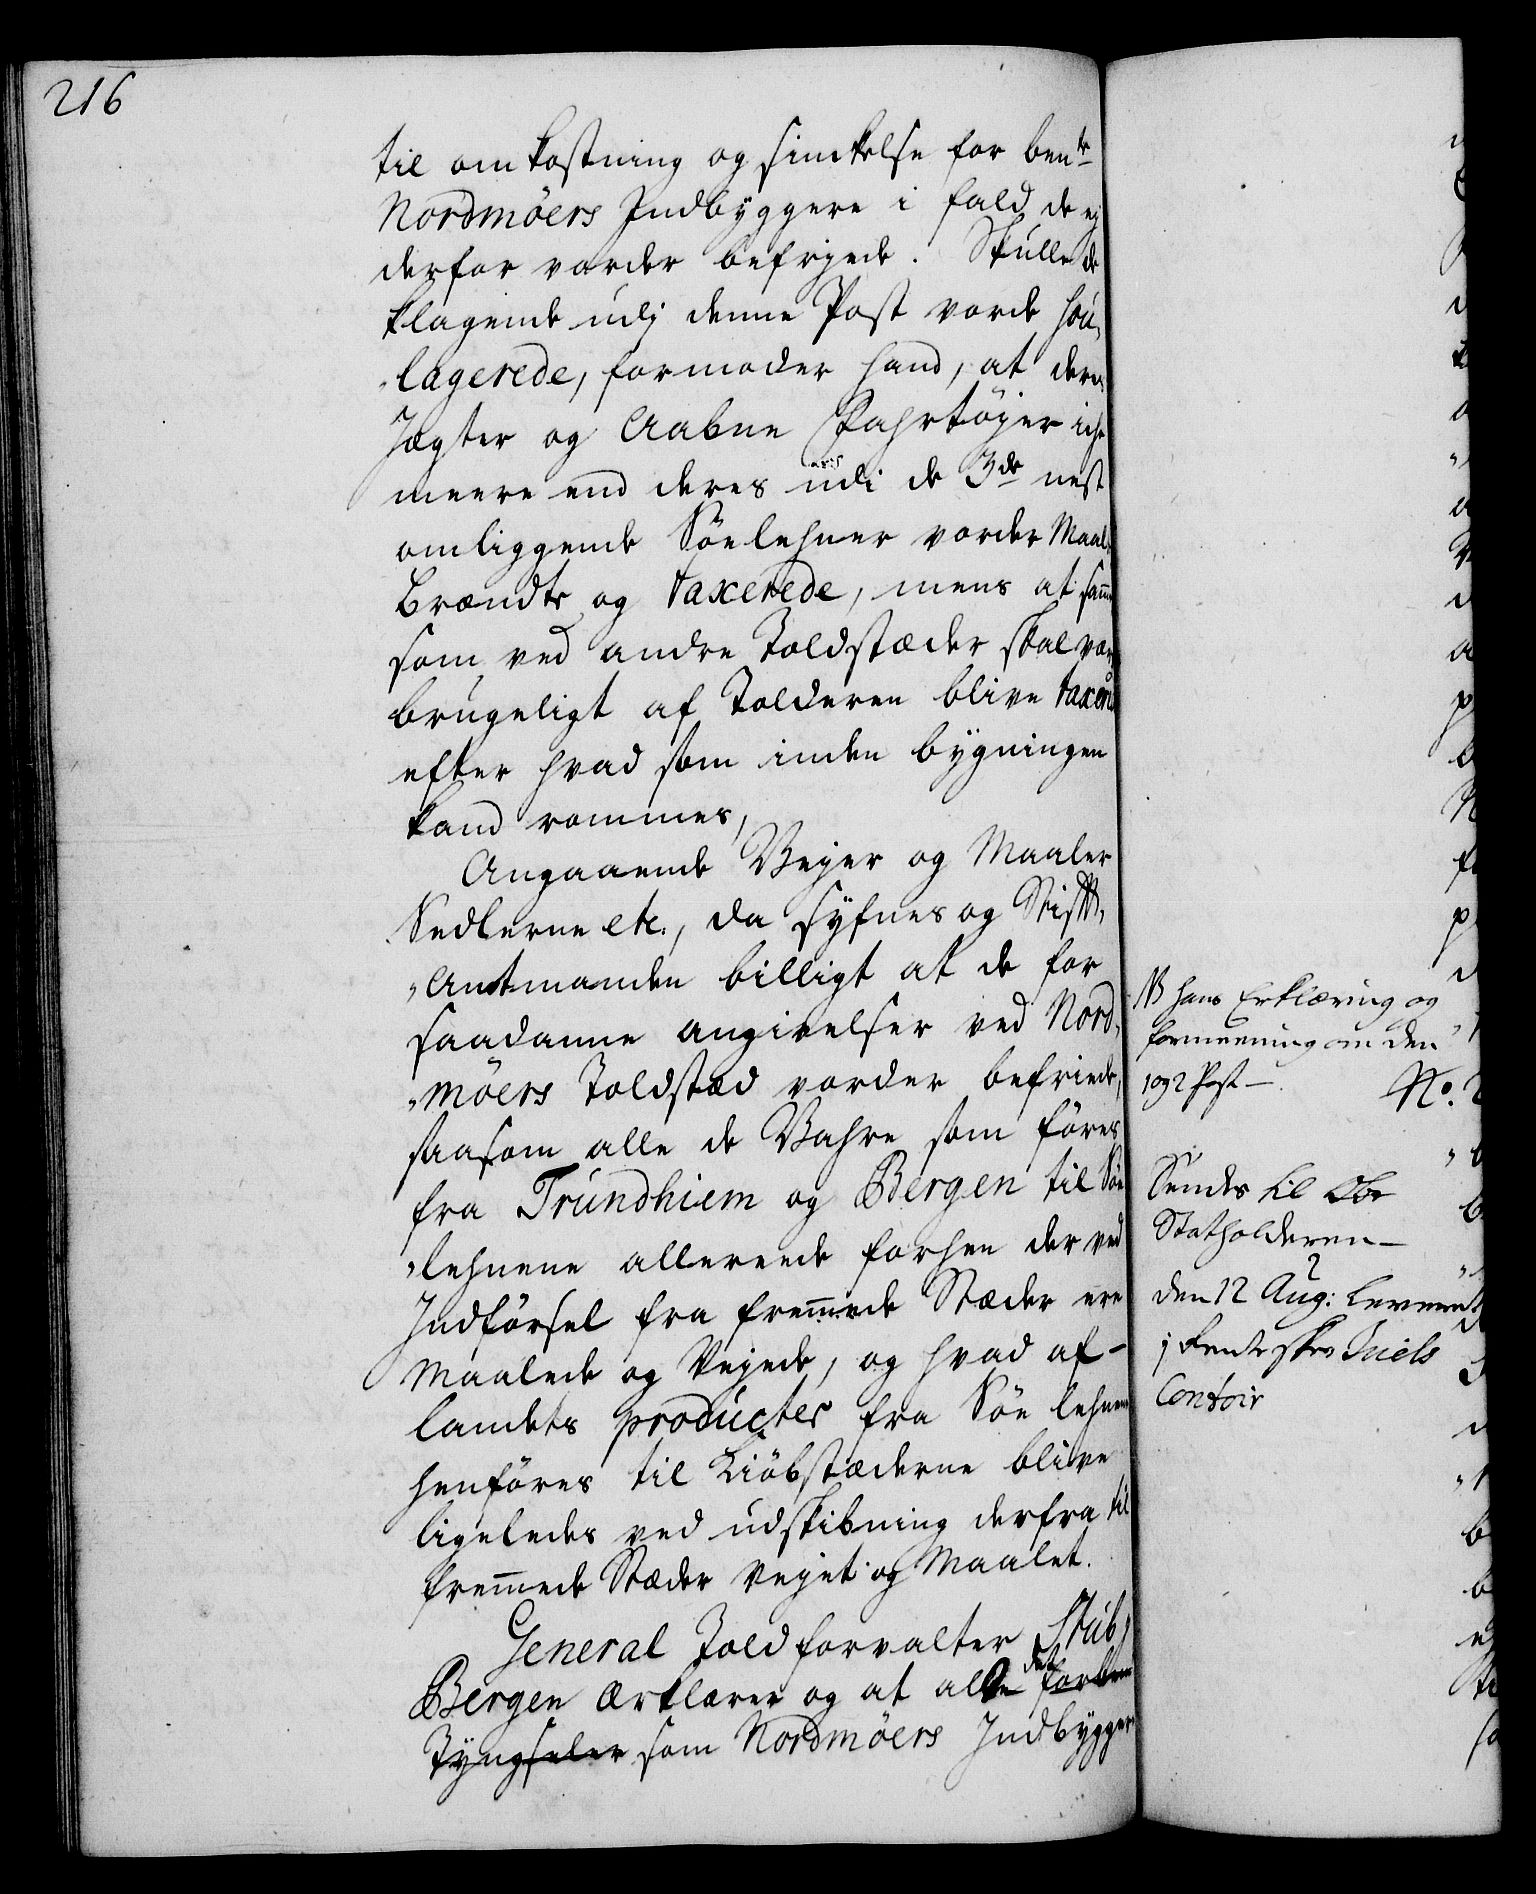 216
til omkostning og sinckelse for bente
Nordmöers Indbyggere i fald de ej
derfor vorder befrjede. Skulle de
klagende udj denne Post vorde sou,
„lagerede, formoder hand, at deres
Jegter og Aabne Fahrtöjer iche
meere end deres udi de 3de nest
omliggende Söelehner vorder Maal,
brændte og taxerede, mens at samme
som ved andre Toldstæder skal være
brugeligt af Tolderen blive taxeret
efter hvad som inden bygningen
kand rommes,
Angaaende Vejer og Maaler
Sedlerne etc., da syfnes og Stifft,
„Amtmanden billigt at de for
saadanne angivelser ved Nord,
„möers Toldsted vorder befriede,
saasom alle de Vahre som föres
fra Trundhiem og Bergen til Söe
„lehnene allereede forhen der ved
Indförsel fra fremmede Stæder ere
Maalede og Vejede, og hvad af
landets producter fra Söe lehnene
henföres til Kiöbstæderne blive
ligeledes ved udskibning derfra til
fremmede Stæder Vejet og Maalet.
General Toldforvalter Stub,
Bergen Erklærer og at alle det
Tyngseler som Nordmöers Indbyggere
NB hans Erklæring og
formeening om den
1 og 2 Post —
No. 2
Sendes til Obr
Statholderen —
den 12 Aug: leveret
j Rente skr Juels
Contoir